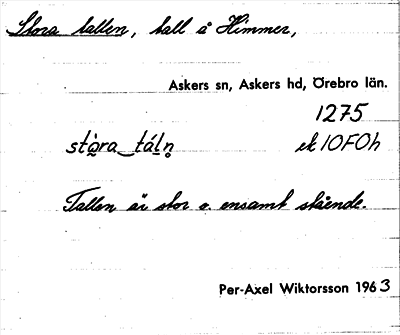 Stora tallen, tall å Himmer,
Askers sn, Askers hd, Örebro län.
1275
stò̤ra‿tálṇ ek 10F0h
Tallen är stor o. ensamt stående.
Per-Axel Wiktorsson 1963